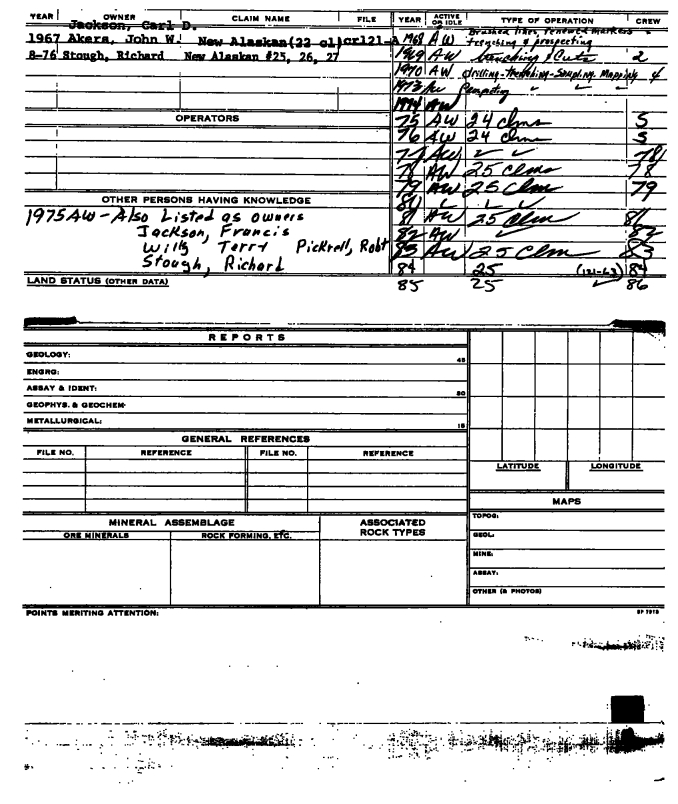 YEAR OWNER CLAIM NAME FILE YEAR ACTIVE OR IDLE TYPE OF OPERATION CREW
Jackson, Carl D.
1967 Akers, John W. New Alaskan(22 cl)cr121-A 1968 AW Brushed lines, renewed markers
trenching & prospecting
8-76 Stough, Richard New Alaskan #25, 26, 27 1969 AW trenching & Cuts 2
1970 AW drilling-Trenching-Sampling-Mapping 4
1973 AW
1974 AW
OPERATORS
75 AW 24 clms 5
76 AW 24 clms 5
77 AW ✓ ✓ 78
78 AW 25 clms 78
79 AW 25 Clm 79
OTHER PERSONS HAVING KNOWLEDGE 80 ✓ ✓ ✓
1975 AW - Also Listed as owners 81 AW 25 Clm 81
Jackson, Francis 82 AW ✓ 82
Wills Terry Pickrell, Robt 83 AW 25 Clm 83
Stough, Richard 84 25 (121-63) 84
LAND STATUS (OTHER DATA) 85 25 ✓ 86
REPORTS
GEOLOGY: 45
ENGRG:
ASSAY & IDENT: 50
GEOPHYS. & GEOCHEM:
METALLURGICAL: 15
GENERAL REFERENCES
FILE NO. REFERENCE FILE NO. REFERENCE
LATITUDE LONGITUDE
MAPS
MINERAL ASSEMBLAGE ASSOCIATED ROCK TYPES
ORE MINERALS ROCK FORMING, ETC.
TOPOG:
GEOL:
MINE:
ASSAY:
OTHER (& PHOTOS)
POINTS MERITING ATTENTION: